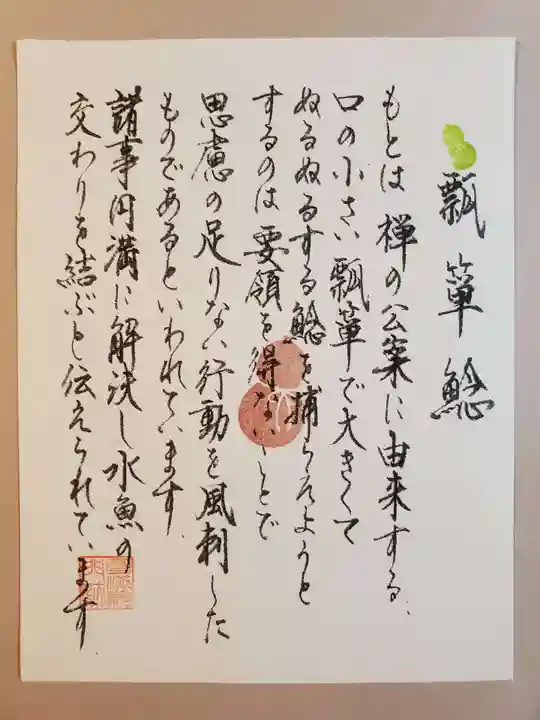 瓢箪鯰
もとは禅の公案に由来する、
口の小さい瓢箪で大きくて
ぬるぬるする鯰を捕らえようと
するのは要領を得ないことで
思慮の足りない行動を風刺した
ものであるといわれています。
諸事円満に解決し水魚の
交わりを結ぶと伝えられています。